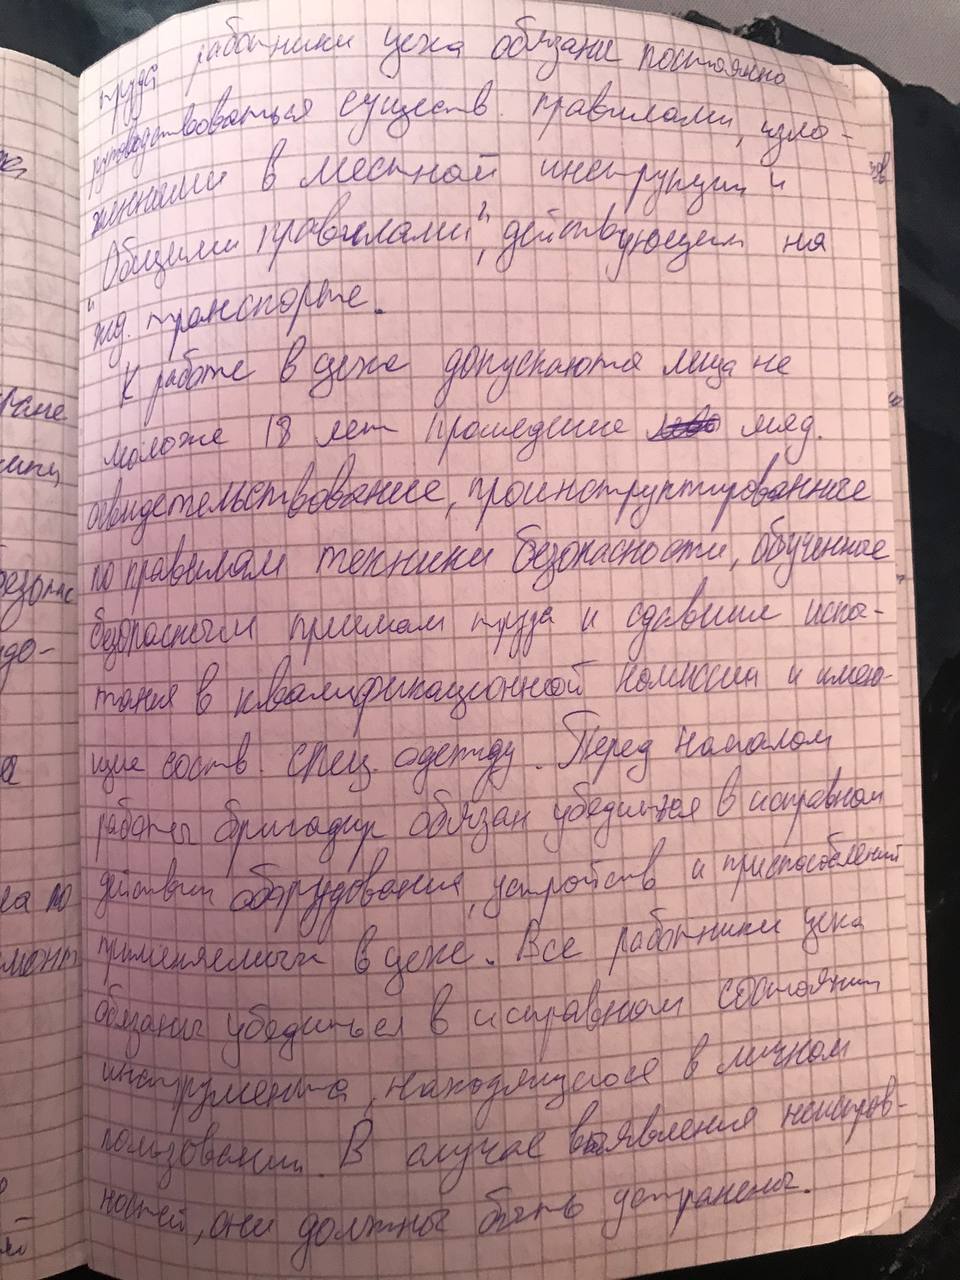 труда работники цеха обязаны постоянно
руководствоваться существ. правилами, изло-
женными в местной инструкции и
"Общими правилами", действующем на
жд. транспорте.
К работе в цехе допускаются лица не
моложе 18 лет прошедшие мед.
освидетельствование, проинструктированные
по правилам техники безопасности, обученные
безопасным приемам труда и сдавшие испы-
тания в квалификационной комиссии и имею-
щие соотв. спец. одежду. Перед началом
работы бригадир обязан убедиться в исправном
действии оборудования, устройств и приспособлений
применяемых в цехе. Все работники цеха
обязаны убедиться в исправном состоянии
инструмента, находящегося в личном
пользовании. В случае выявления неисправ-
ностей, они должны быть устранены.